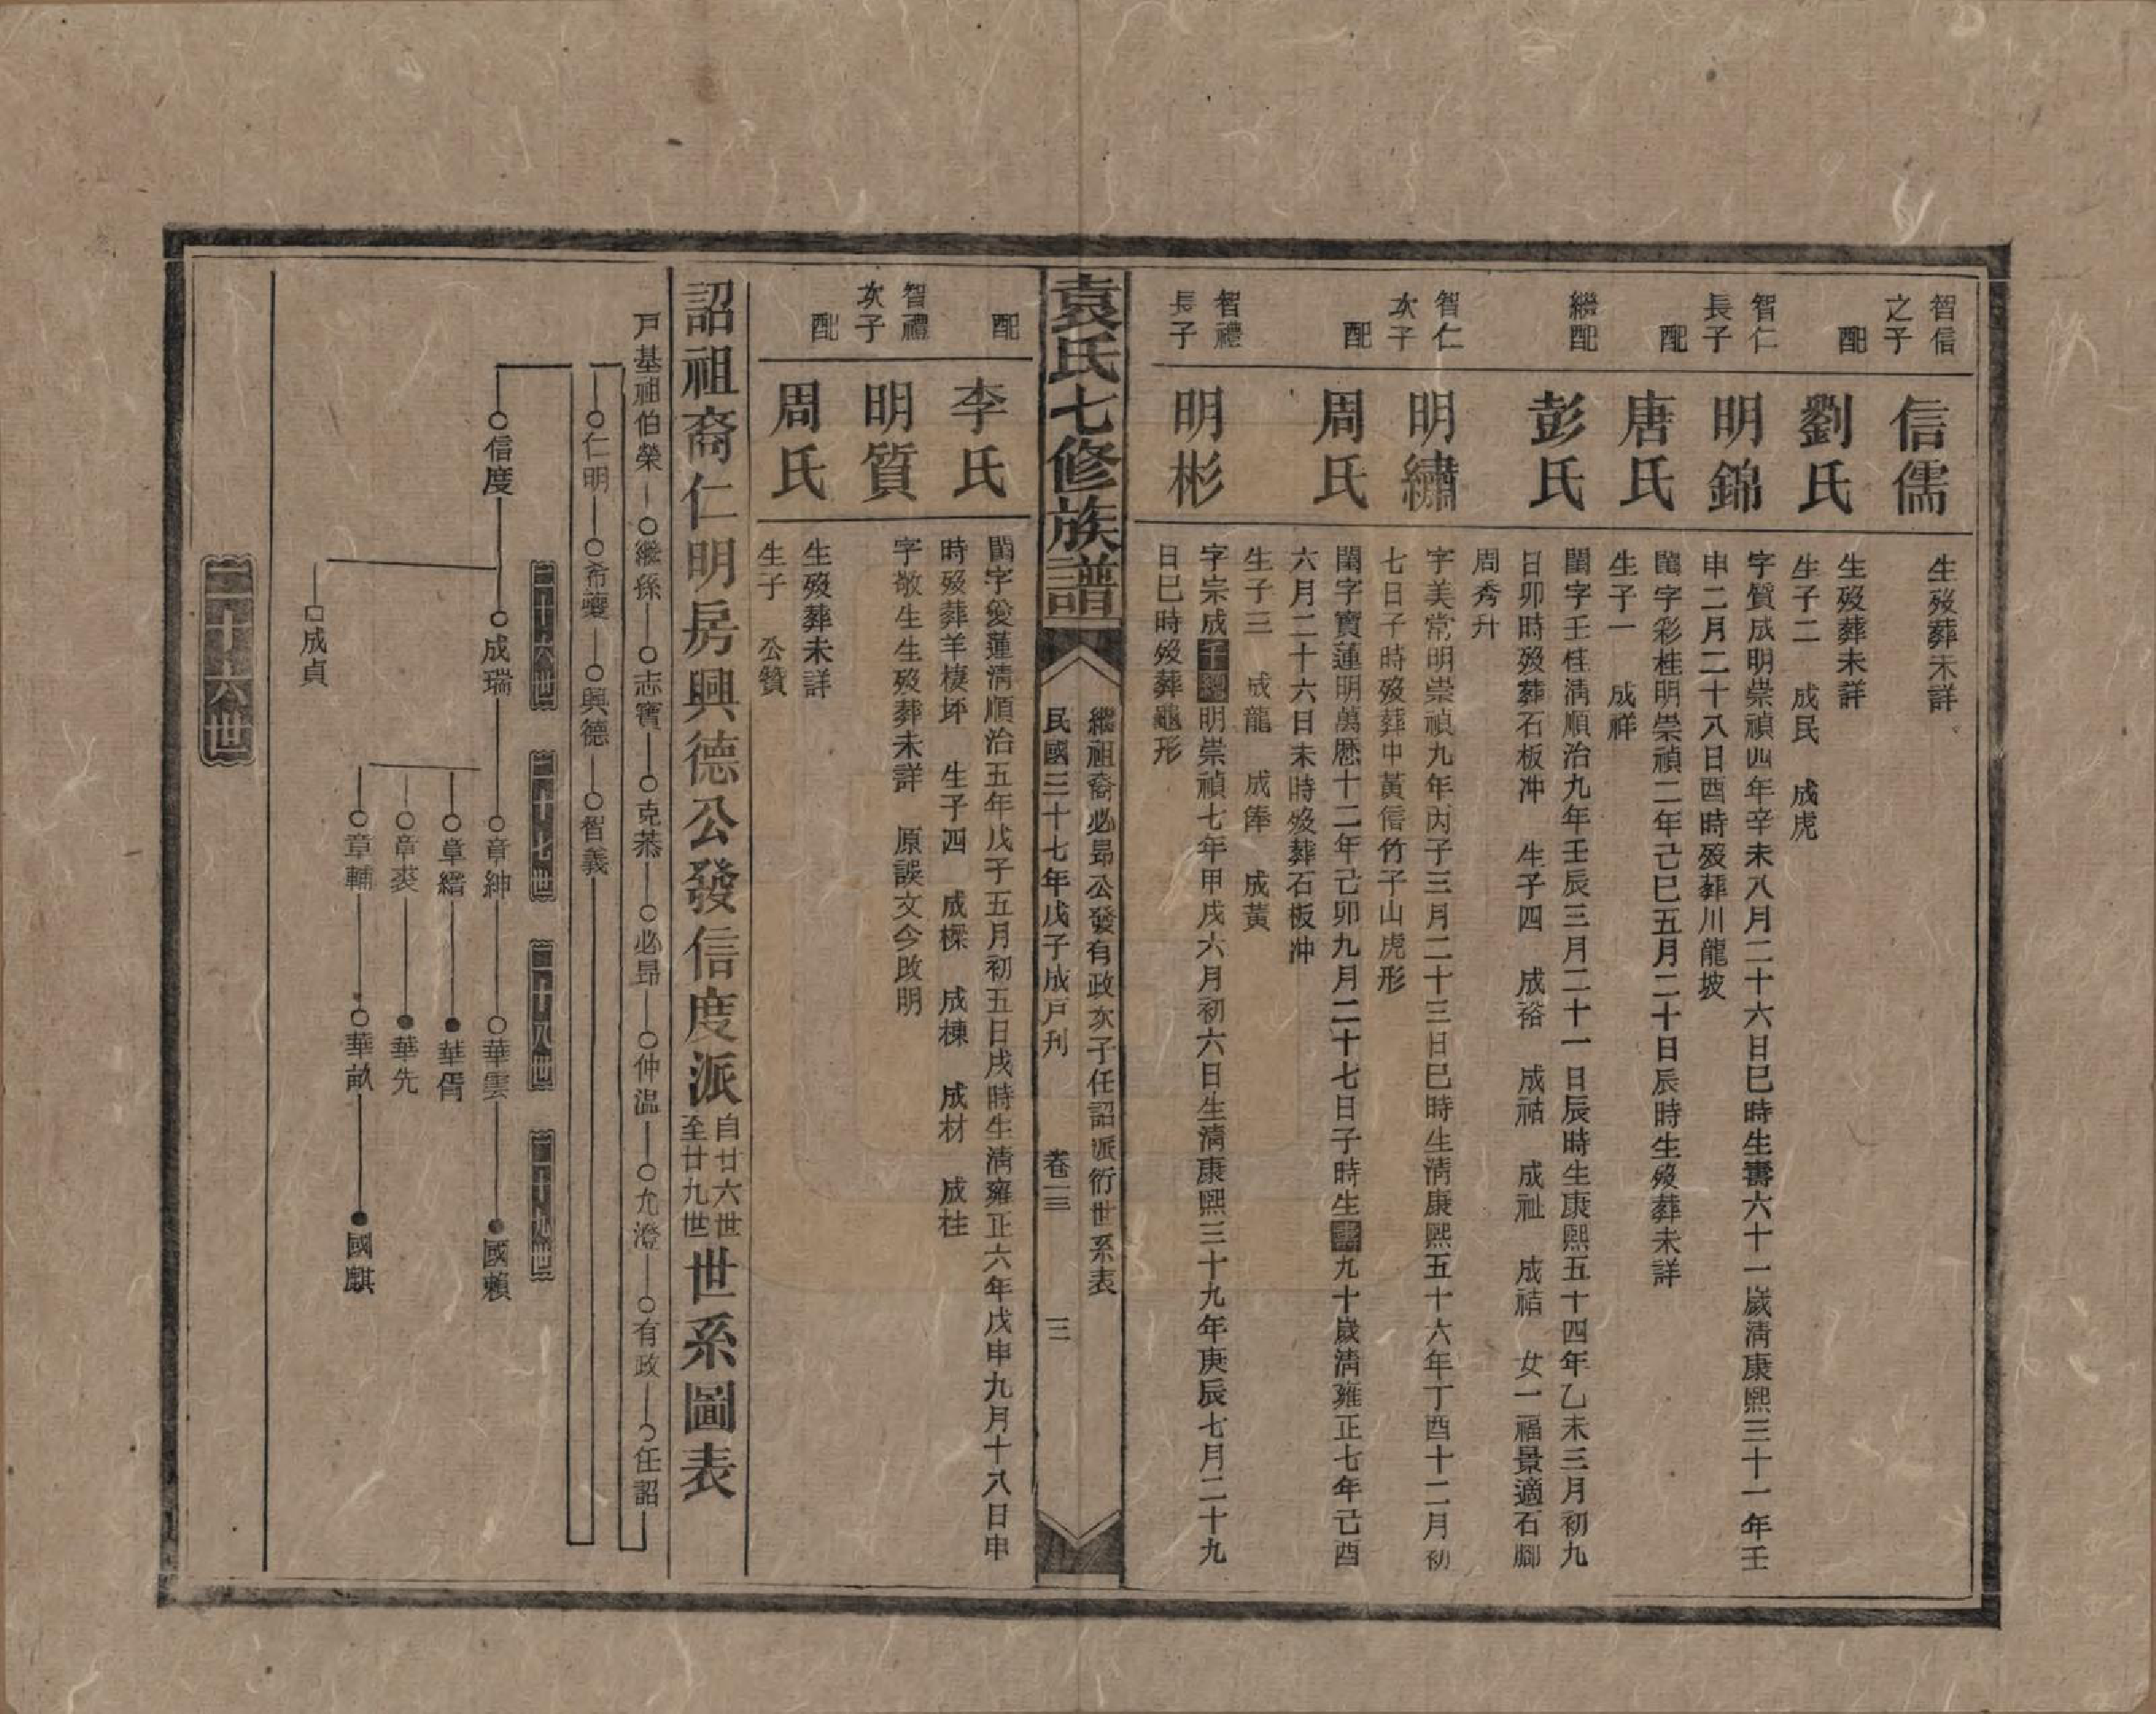 智信之子
信儒
生歿葬未詳
配
劉氏
生歿葬未詳
生子二　成民　成虎
智仁長子
明錦
字質成明崇禎四年辛未八月二十六日巳時生壽六十一歲淸康熙三十一年壬
申二月二十八日酉時歿葬川龍坡
配
唐氏
閨字彩桂明崇禎二年己巳五月二十日辰時生歿葬未詳
生子一　成祥
繼配
彭氏
閨字壬桂淸順治九年壬辰三月二十一日辰時生康熙五十四年乙未三月初九
日卯時歿葬石板冲　生子四　成裕　成祜　成祉　成祮　女一福景適石腳
周秀升
智仁次子
明繡
字美常明崇禎九年丙子三月二十三日巳時生淸康熙五十六年丁酉十二月初
七日子時歿葬中黃信竹子山虎形
配
周氏
閨字寶蓮明萬曆十二年己卯九月二十七日子時生壽九十歲淸雍正七年己酉
六月二十六日未時歿葬石板冲
生子三　成龍　成俸　成黃
智禮長子
明彬
字宗成千總明崇禎七年甲戌六月初六日生淸康熙三十九年庚辰七月二十九
日巳時歿葬龜形
袁氏七修族譜
繼祖裔必昻公發有政次子任詔派衍世系表
民國三十七年戊子成戸刋　卷一三　三
配
李氏
閨字愛蓮淸順治五年戊子五月初五日戌時生淸雍正六年戊申九月十八日申
時歿葬羊棲坪　生子四　成樑　成棟　成材　成桂
智禮次子
明質
字敬生生歿葬未詳　原誤文今改明
配
周氏
生歿葬未詳
生子　公贊
詔祖裔仁明房興德公發信度派自廿六世至廿九世世系圖表
戸基祖伯榮　繼孫　志寶　克恭　必昻　仲温　允澄　有政　任詔
仁明　希夔　興德　智義
二十六世　二十七世　二十八世　二十九世
信度　成瑞　章紳　華雲　國賴
章縉　華胥
章裘　華先
章輔　華畝　國麒
成貞
二十六世